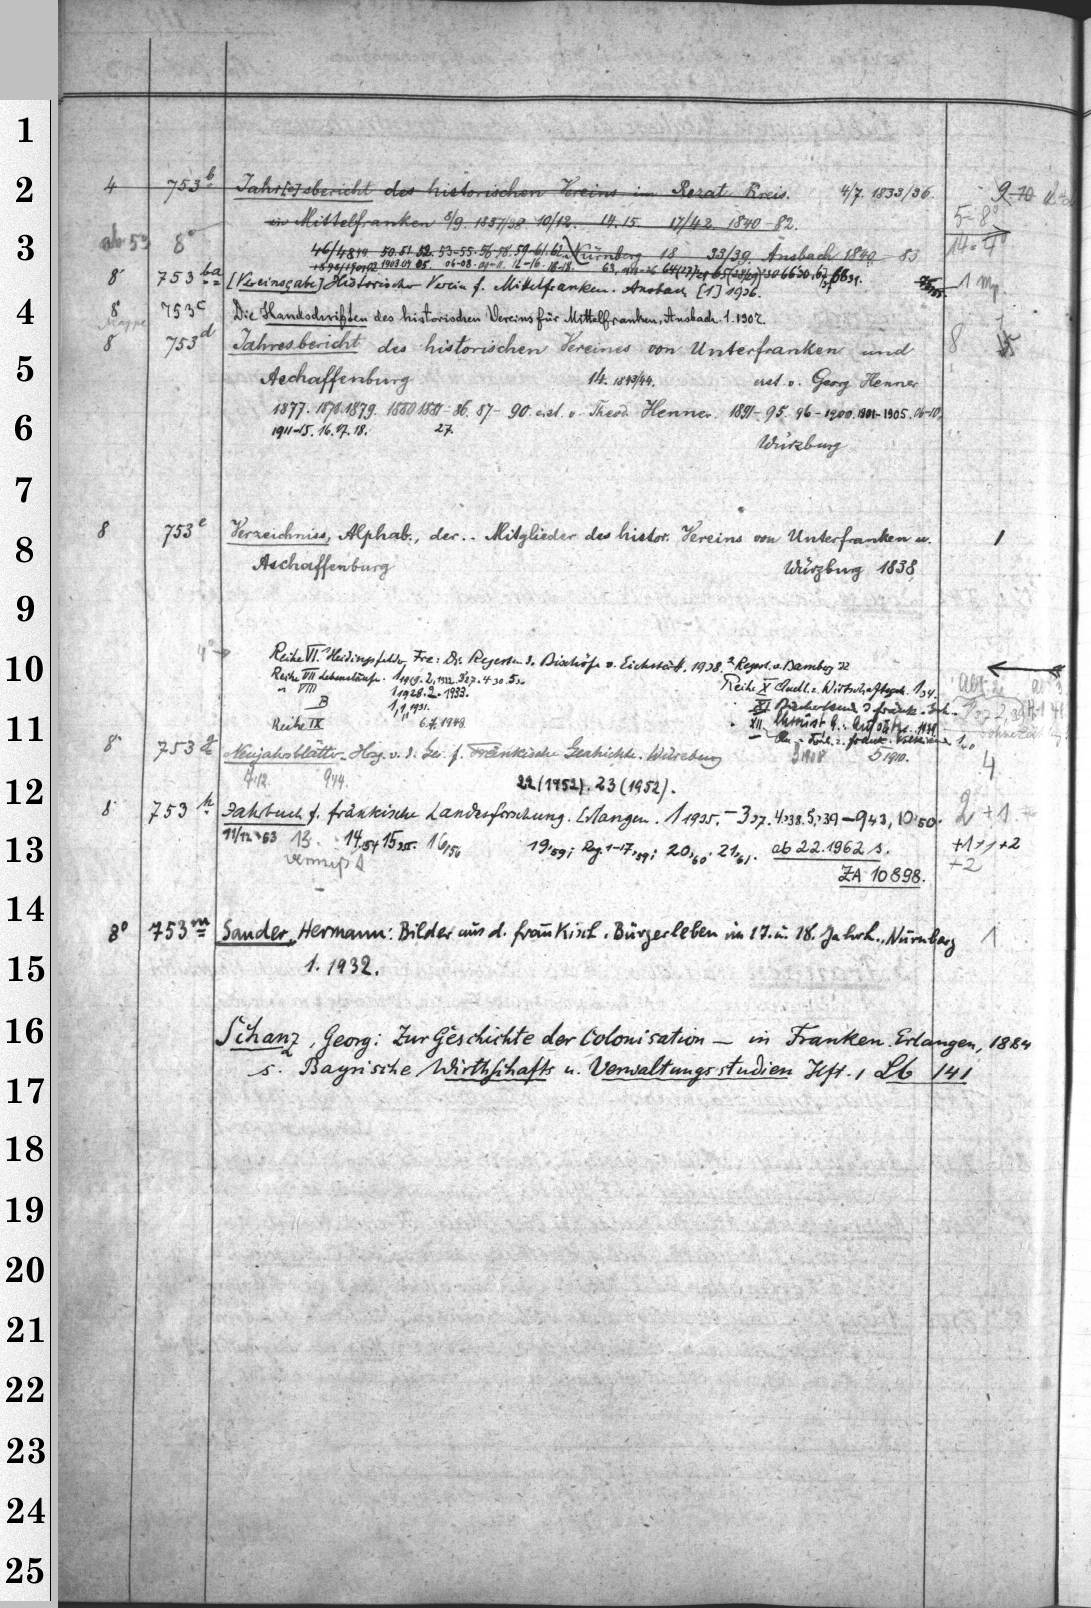 1
2
3
4
5
6
7
8
9
10
11
12
13
14
15
16
17
18
19
20
21
22
23
24
25
4 753 b Jahr[e]sbericht des historischen Vereins im Rezat Kreis. 4/7. 1833/36. 9-10
in Mittelfranken 8/9. 1837/38 10/12. 14.15. 17/42. 1840-82. 5=8°
ab 53 8° Nürnberg 18 33/39. Ansbach 1840 - 83. 14=4°
8° 753 ba [Vereinsgabe] Historischer Verein f. Mittelfranken. Ansbach [1] 1926. 1
8° 753 c Die Handschriften des historischen Vereins für Mittelfranken, Ansbach. 1. 1907.
Mappe
8 753 d Jahresbericht des historischen Vereines von Unterfranken und 8
Aschaffenburg 14. 1843/44. erst. v. Georg Henner
1877. 1878. 1879. 1880 1881-86. 87-90. erst. v. Theod. Henner. 1891-95. 96-1900. 1901-1905. 06-10.
1911-15. 16. 17. 18. 27.
Würzburg
8 753 e Verzeichniss, Alphab., der .. Mitglieder des histor. Vereins von Unterfranken u. 1
Aschaffenburg Würzburg 1838
4° Reihe VI. Heidingsfelder, Frz: Die Regesten d. Bischöfe v. Eichstätt. 1938. 2 Regest. v. Bamberg 32
Reihe VII Lebensläufe. Reihe X Quell. z. Wirtschaftsgesch. 1 34.
" VIII 1 1928. 2. 1933.
B 1, 1931.
Reihe IX 6.7. 1949.
8° 753 g Neujahrsblätter. Hsg. v. d. Ges. f. Fränkische Geschichte. Würzburg 3 1908 5 1910. 4
7/12. 9/14. 22 (1952). 23 (1952).
8° 753 h Jahrbuch f. fränkische Landesforschung. Erlangen. 1 1935.-3 37. 4,38. 5,39-9 43, 10'50. 2 +1
11/12 '53 13. 14,54 15,55. 16/56 19,'59; Reg. 1-17,'59; 20,'60. 21,'61. ab 22.1962 s. +1+1+2
vermißt ZA 10898. +2
8° 753 m Sander, Hermann: Bilder aus d. fränkisch. Bürgerleben im 17. u. 18. Jahrh., Nürnberg 1
1. 1932.
Schanz, Georg: Zur Geschichte der Colonisation — in Franken. Erlangen, 1884
s. Bayrische Wirthschafts u. Verwaltungsstudien Hft. 1 Lb 141